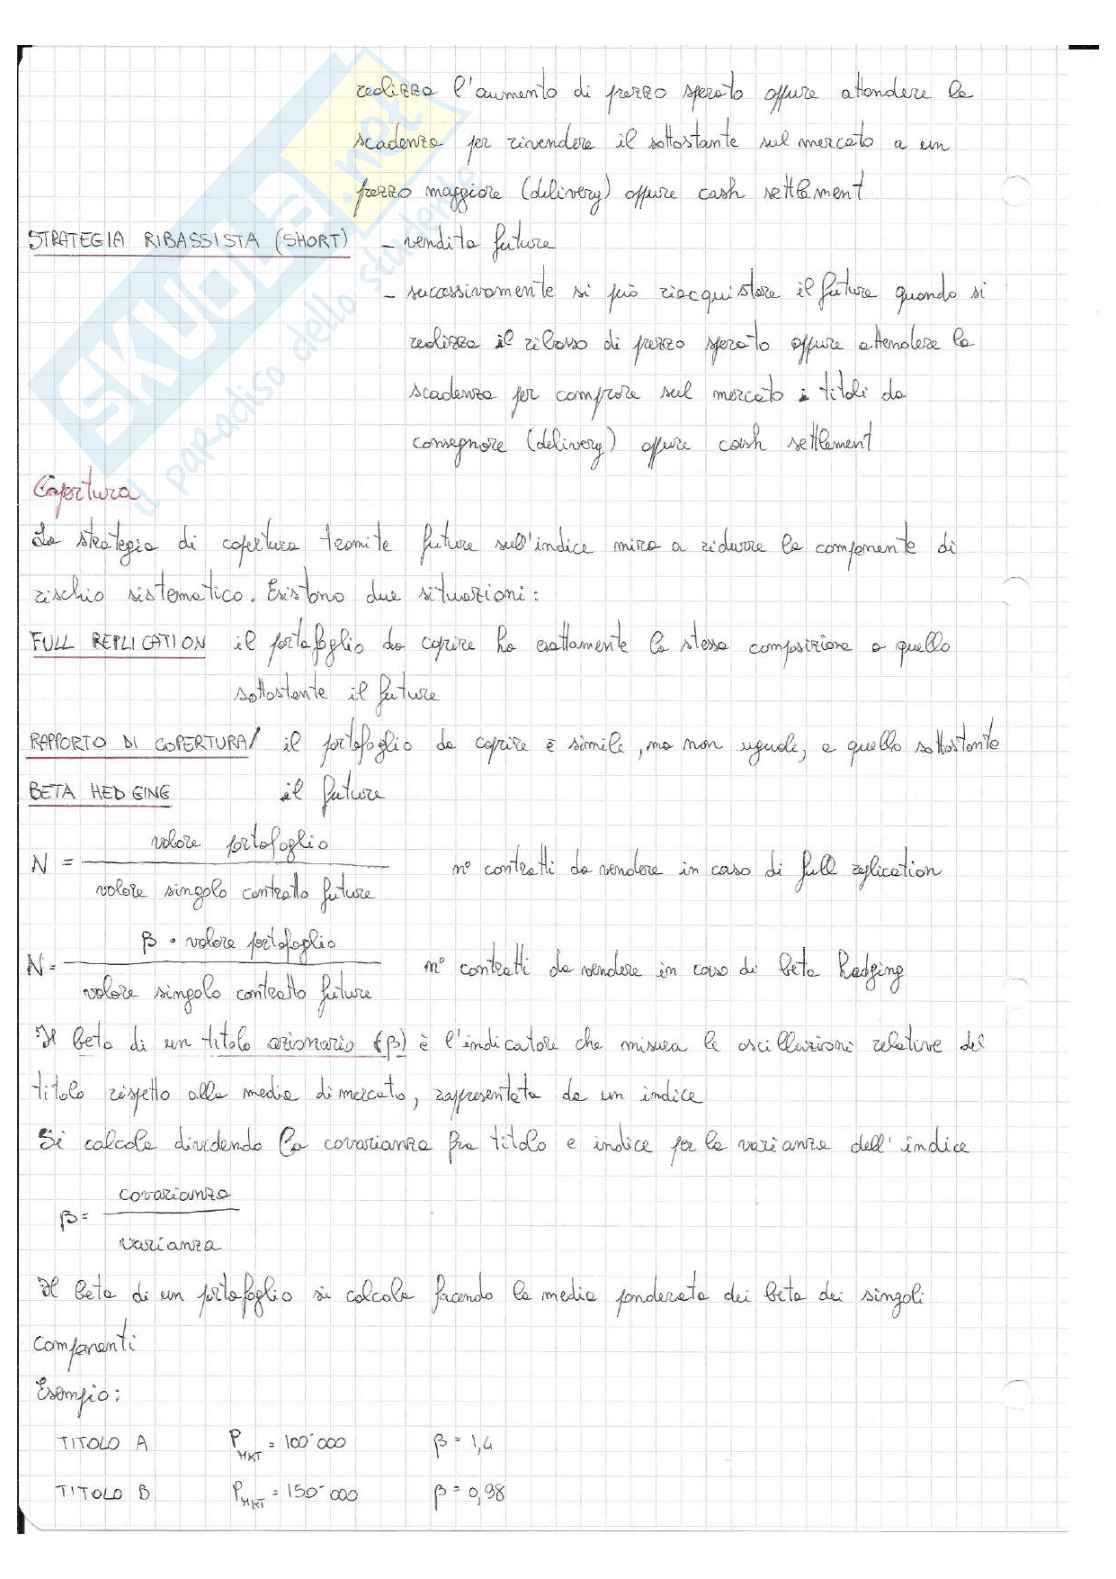 realizza l'aumento di prezzo sperato oppure attendere la
scadenza per rivendere il sottostante sul mercato a un
prezzo maggiore (delivery) oppure cash settlement
STRATEGIA RIBASSISTA (SHORT) - vendita future
- successivamente si può riacquistare il future quando si
realizza il ribasso di prezzo sperato oppure attendere la
scadenza per comprare sul mercato i titoli da
consegnare (delivery) oppure cash settlement
Copertura
La strategia di copertura tramite future sull'indice mira a ridurre la componente di
rischio sistematico. Esistono due situazioni:
FULL REPLICATION il portafoglio da coprire ha esattamente la stessa composizione a quello
sottostante il future
RAPPORTO DI COPERTURA/ il portafoglio da coprire è simile, ma non uguale, a quello sottostante
BETA HEDGING il future
N = valore portafoglio / valore singolo contratto future n° contratti da vendere in caso di full replication
N = β · valore portafoglio / valore singolo contratto future n° contratti da vendere in caso di beta hedging
Il beta di un titolo azionario (β) è l'indicatore che misura le oscillazioni relative del
titolo rispetto alla media di mercato, rappresentata da un indice
Si calcola dividendo la covarianza fra titolo e indice per la varianza dell'indice
β = covarianza / varianza
Il beta di un portafoglio si calcola facendo la media ponderata dei beta dei singoli
componenti
Esempio:
TITOLO A P MKT = 100'000 β = 1,4
TITOLO B P MKT = 150'000 β = 0,98
SKUOLA.net
il paradiso dello studente